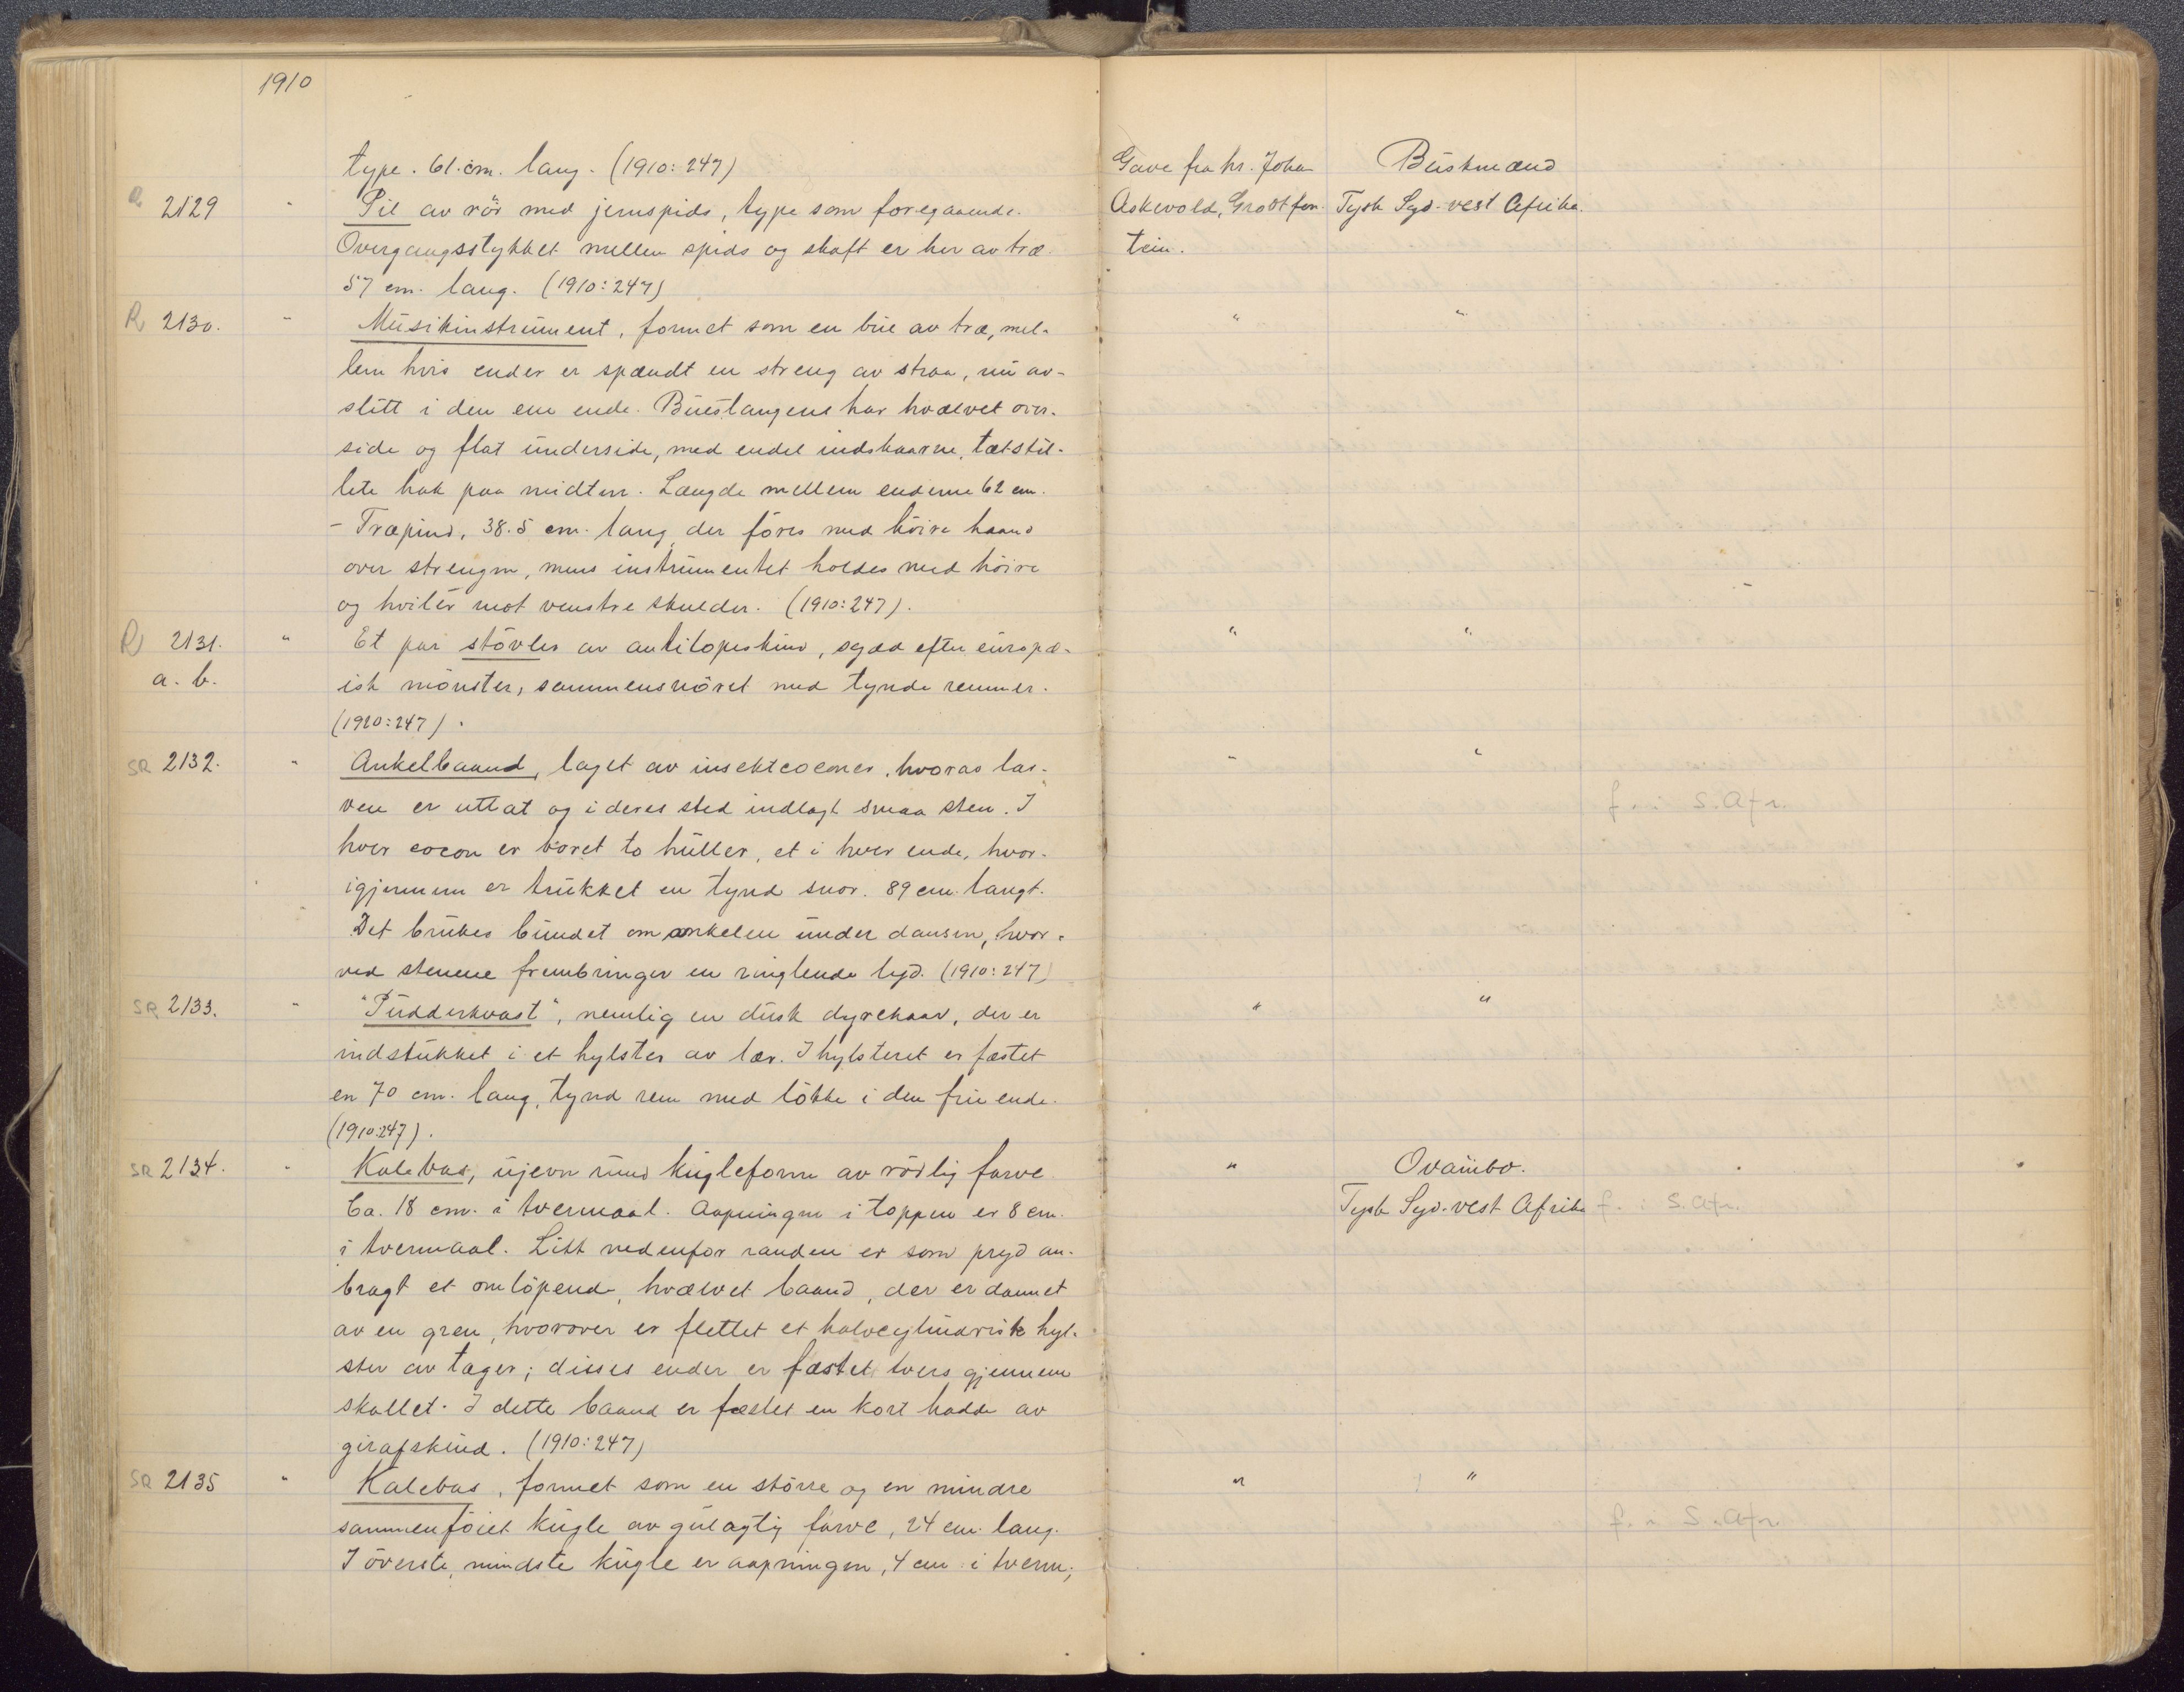 1910
type. 61. cm. lang. (1910:247)
Gave fra hr. Johan
Buskmænd
R 2129 " Pil av rör med jernspids, type som foregaaende.
Askevold, Grootfon-
Tysk Syd-vest Afrika.
Overgangsstykket mellem spids og skaft er her av træ.
tein.
57 cm. lang. (1910:247)
R 2130. " Musikinstrument, formet som en bue av træ, mel-
" "
lem hvis ender er spændt en streng av straa, nu av-
slitt i den ene ende. Buestangens har hvælvet over-
side og flat underside, med endel indskaarne, tætstil-
lete hak paa midten. Længde mellem enderne 62 cm.
- Træpind, 38.5 cm. lang, der föres med höire haand
over strengen, mens instrumentet holdes med höire
og hviler mot venstre skulder. (1910:247).
R 2131. " Et par stövler av antilopeskind, sydd efter europæ-
" "
a. b. isk mönster, sammensnöret med tynde remmer.
(1910:247).
SR 2132. " Ankelbaand, laget av insektcocones, hvoras lar-
" "
ven er uttat og i deres sted indlagt smaa sten. I
f. i S. Afr.
hver cocon er boret to huller, et i hver ende, hvor-
igjennem er trukket en tynd snor. 89 cm. langt.
Det brukes bundet om ankelen under dansen, hvor-
ved stenene frembringer en ringlende lyd. (1910:247)
SR 2133. " "Pudderkvast", nemlig en dusk dyrehaar, der er
" "
indstukket i et hylster av lær. I hylsteret er fæstet
en 70 cm. lang, tynd rem med lökke i den frie ende.
(1910:247).
SR 2134. " Kalebas, ujevn rund kugleform av rödlig farve
" Ovambo.
Ca. 18 cm. i tvermaal. Aapningen i toppen er 8 cm.
Tysk Syd-vest Afrika f. i S. Afr.
i tvermaal. Litt nedenfor randen er som pryd an-
bragt et omlöpende, hvælvet baand, der er dannet
av en gren, hvorover er flettet et halvcylindrisk hyl-
ster av tæger; disses ender er fæstet tvers gjennem
skallet. I dette baand er fæstet en kort hadde av
girafskind. (1910:247)
SR 2135 " Kalebas, formet som en större og en mindre
" "
sammenföiet kugle av gulagtig farve, 24 cm. lang.
f. i S. Afr.
I överste, mindste kugle er aapningen, 4 cm i tverm;